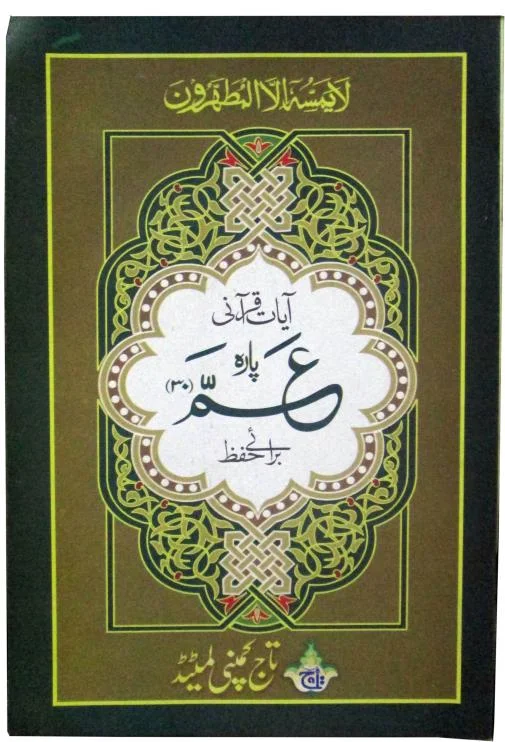 لَا يَمَسُّهٗ اِلَّا الْمُطَهَّرُوْنَ
آیات قرآنی
پارہ
عَمَّ (۳۰)
برائے حفظ
تاج کمپنی لمیٹڈ
تاج